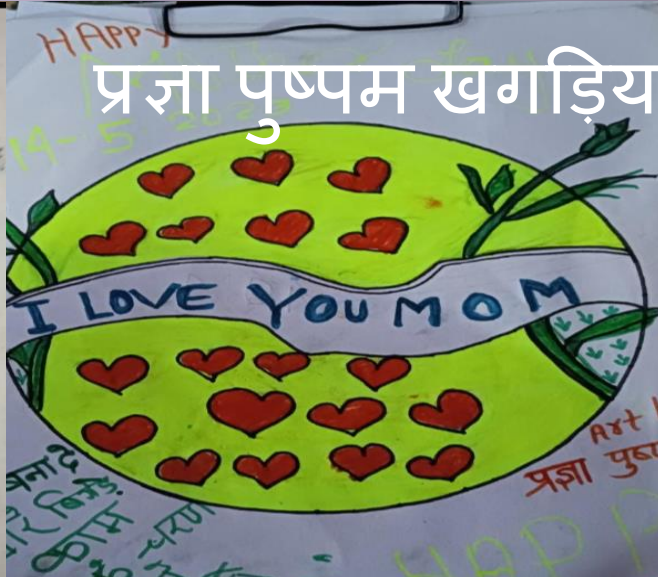 HAPPY
प्रज्ञा पुष्पम खगड़िय
14-5 2023
I LOVE YOU MOM
Art
प्रज्ञा पुष्प
बनादे
काम
चरण
HAPP